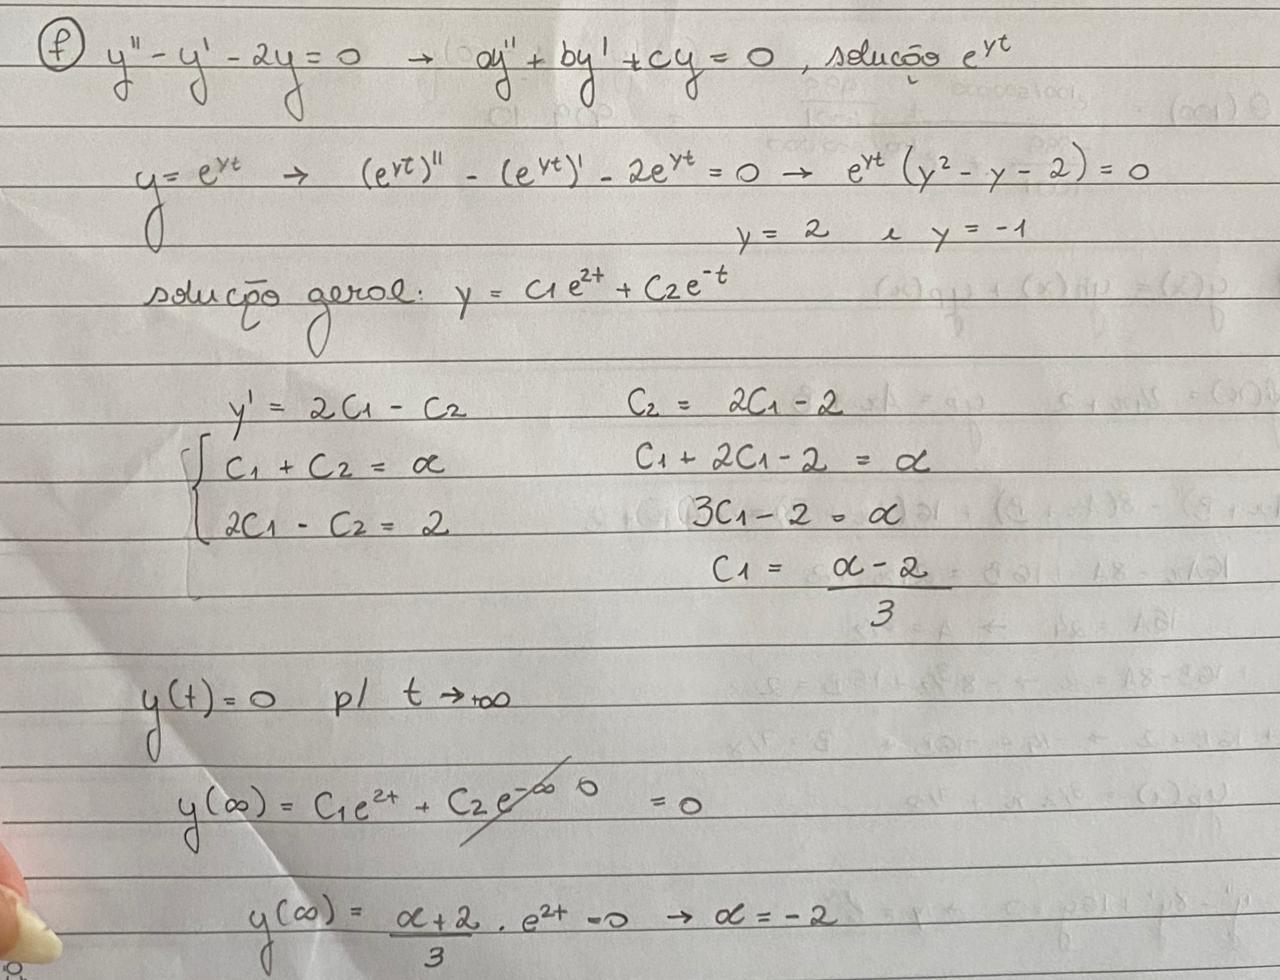 f) y'' - y' - 2y = 0 → ay'' + by' + cy = 0 , solução e^γt
y = e^γt → (e^γt)'' - (e^γt)' - 2e^γt = 0 → e^γt (γ² - γ - 2) = 0
γ = 2 e γ = -1
solução geral: y = C1 e^2t + C2 e^-t
y' = 2C1 - C2
C1 + C2 = α
2C1 - C2 = 2
C2 = 2C1 - 2
C1 + 2C1 - 2 = α
3C1 - 2 = α
C1 = α - 2 / 3
y(t) = 0 p/ t → +∞
y(∞) = C1 e^2t + C2 e^-∞ 0 = 0
y(∞) = α + 2 / 3 . e^2t = 0 → α = -2